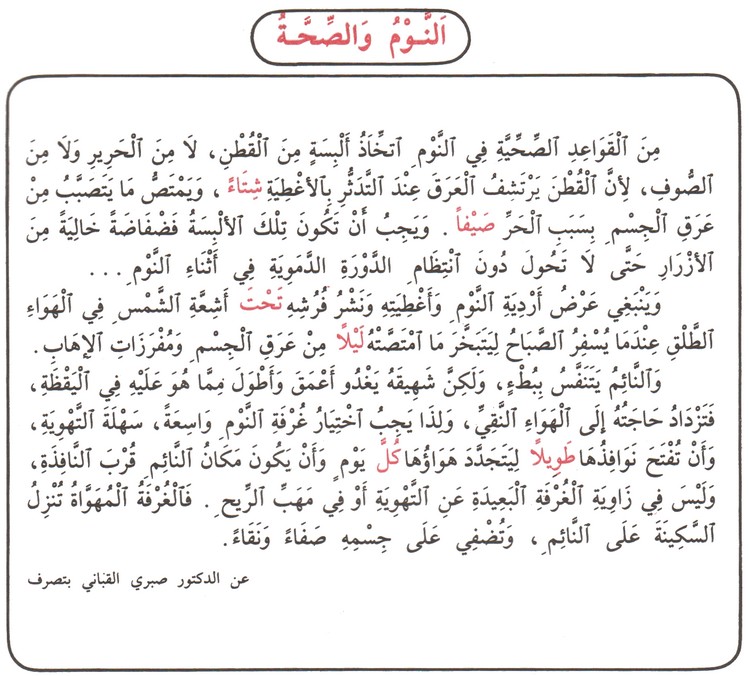 اَلنَّوْمُ وَالصِّحَّةُ
مِنَ ٱلْقَوَاعِدِ ٱلصِّحِّيَّةِ فِي ٱلنَّوْمِ ٱتِّخَاذُ أَلْبِسَةٍ مِنَ ٱلْقُطْنِ، لَا مِنَ ٱلْحَرِيرِ وَلَا مِنَ
ٱلصُّوفِ، لِأَنَّ ٱلْقُطْنَ يَرْتَشِفُ ٱلْعَرَقَ عِنْدَ ٱلتَّدَثُّرِ بِٱلأَغْطِيَةِ شِتَاءً، وَيَمْتَصُّ مَا يَتَصَبَّبُ مِنْ
عَرَقِ ٱلْجِسْمِ بِسَبَبِ ٱلْحَرِّ صَيْفاً. وَيَجِبُ أَنْ تَكُونَ تِلْكَ ٱلأَلْبِسَةُ فَضْفَاضَةً خَالِيَةً مِنَ
ٱلأَزْرَارِ حَتَّى لَا تَحُولَ دُونَ ٱنْتِظَامِ ٱلدَّوْرَةِ ٱلدَّمَوِيَةِ فِي أَثْنَاءِ ٱلنَّوْمِ...
وَيَنْبَغِي عَرْضُ أَرْدِيَةِ ٱلنَّوْمِ وَأَغْطِيَتِهِ وَنَشْرُ فُرُشِهِ تَحْتَ أَشِعَّةِ ٱلشَّمْسِ فِي ٱلْهَوَاءِ
ٱلطَّلْقِ عِنْدَمَا يُسْفِرُ ٱلصَّبَاحُ لِيَتَبَخَّرَ مَا ٱمْتَصَّتْهُ لَيْلًا مِنْ عَرَقِ ٱلْجِسْمِ وَمُفْرَزَاتِ ٱلإِهَابِ.
وَٱلنَّائِمُ يَتَنَفَّسُ بِبُطْءٍ، وَلَكِنَّ شَهِيقَهُ يَغْدُو أَعْمَقَ وَأَطْوَلَ مِمَّا هُوَ عَلَيْهِ فِي ٱلْيَقْظَةِ،
فَتَزْدَادُ حَاجَتُهُ إِلَى ٱلْهَوَاءِ ٱلنَّقِيِّ، وَلِذَا يَجِبُ ٱخْتِيَارُ غُرْفَةِ ٱلنَّوْمِ وَاسِعَةً، سَهْلَةَ ٱلتَّهْوِيَةِ،
وَأَنْ تُفْتَحَ نَوَافِذُهَا طَوِيلًا لِيَتَجَدَّدَ هَوَاؤُهَا كُلَّ يَوْمٍ وَأَنْ يَكُونَ مَكَانُ ٱلنَّائِمِ قُرْبَ ٱلنَّافِذَةِ،
وَلَيْسَ فِي زَاوِيَةِ ٱلْغُرْفَةِ ٱلْبَعِيدَةِ عَنِ ٱلتَّهْوِيَةِ أَوْ فِي مَهَبِّ ٱلرِّيحِ. فَٱلْغُرْفَةُ ٱلْمُهَوَّاةُ تُنْزِلُ
ٱلسَّكِينَةَ عَلَى ٱلنَّائِمِ، وَتُضْفِي عَلَى جِسْمِهِ صَفَاءً وَنَقَاءً.
عن الدكتور صبري القباني بتصرف